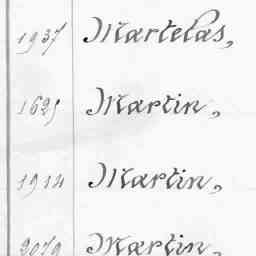 1937 Martelas,
1625 Martin,
1914 Martin,
2079 Martin,